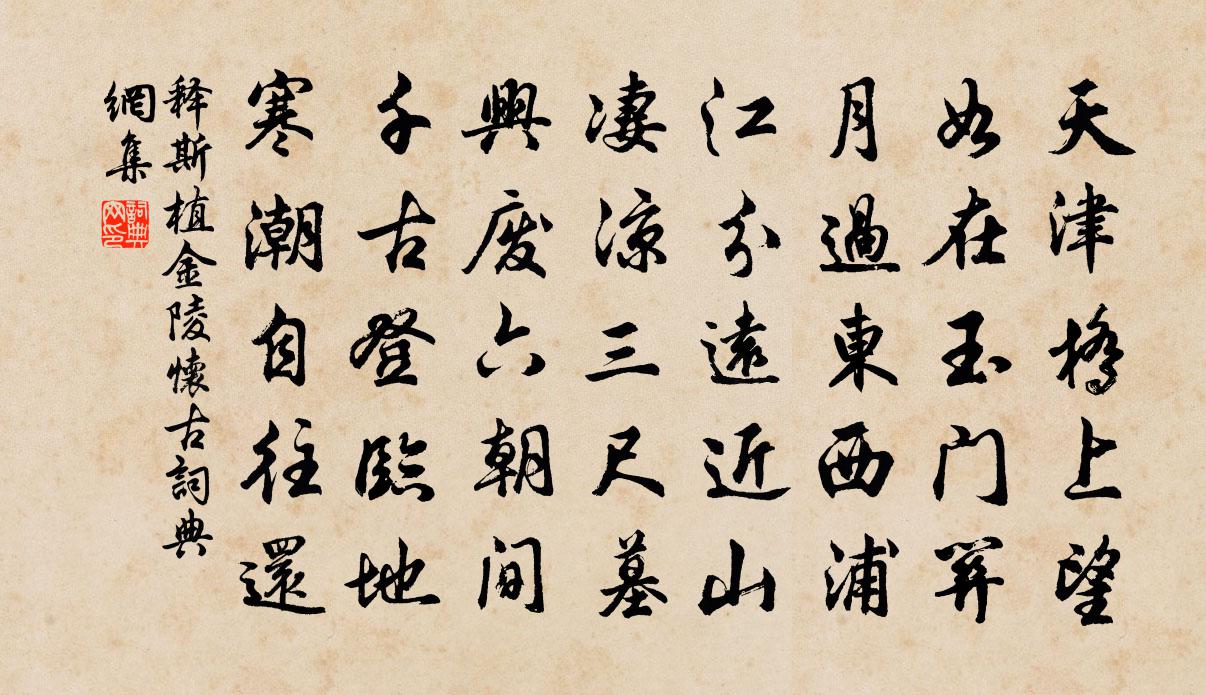 天津橋上望
如在玉门關
月過東西浦
江分遠近山
凄凉三尺墓
興废六朝间
千古登臨地
寒潮自往還
释斯植金陵懷古詞典
網集
詞典
网印